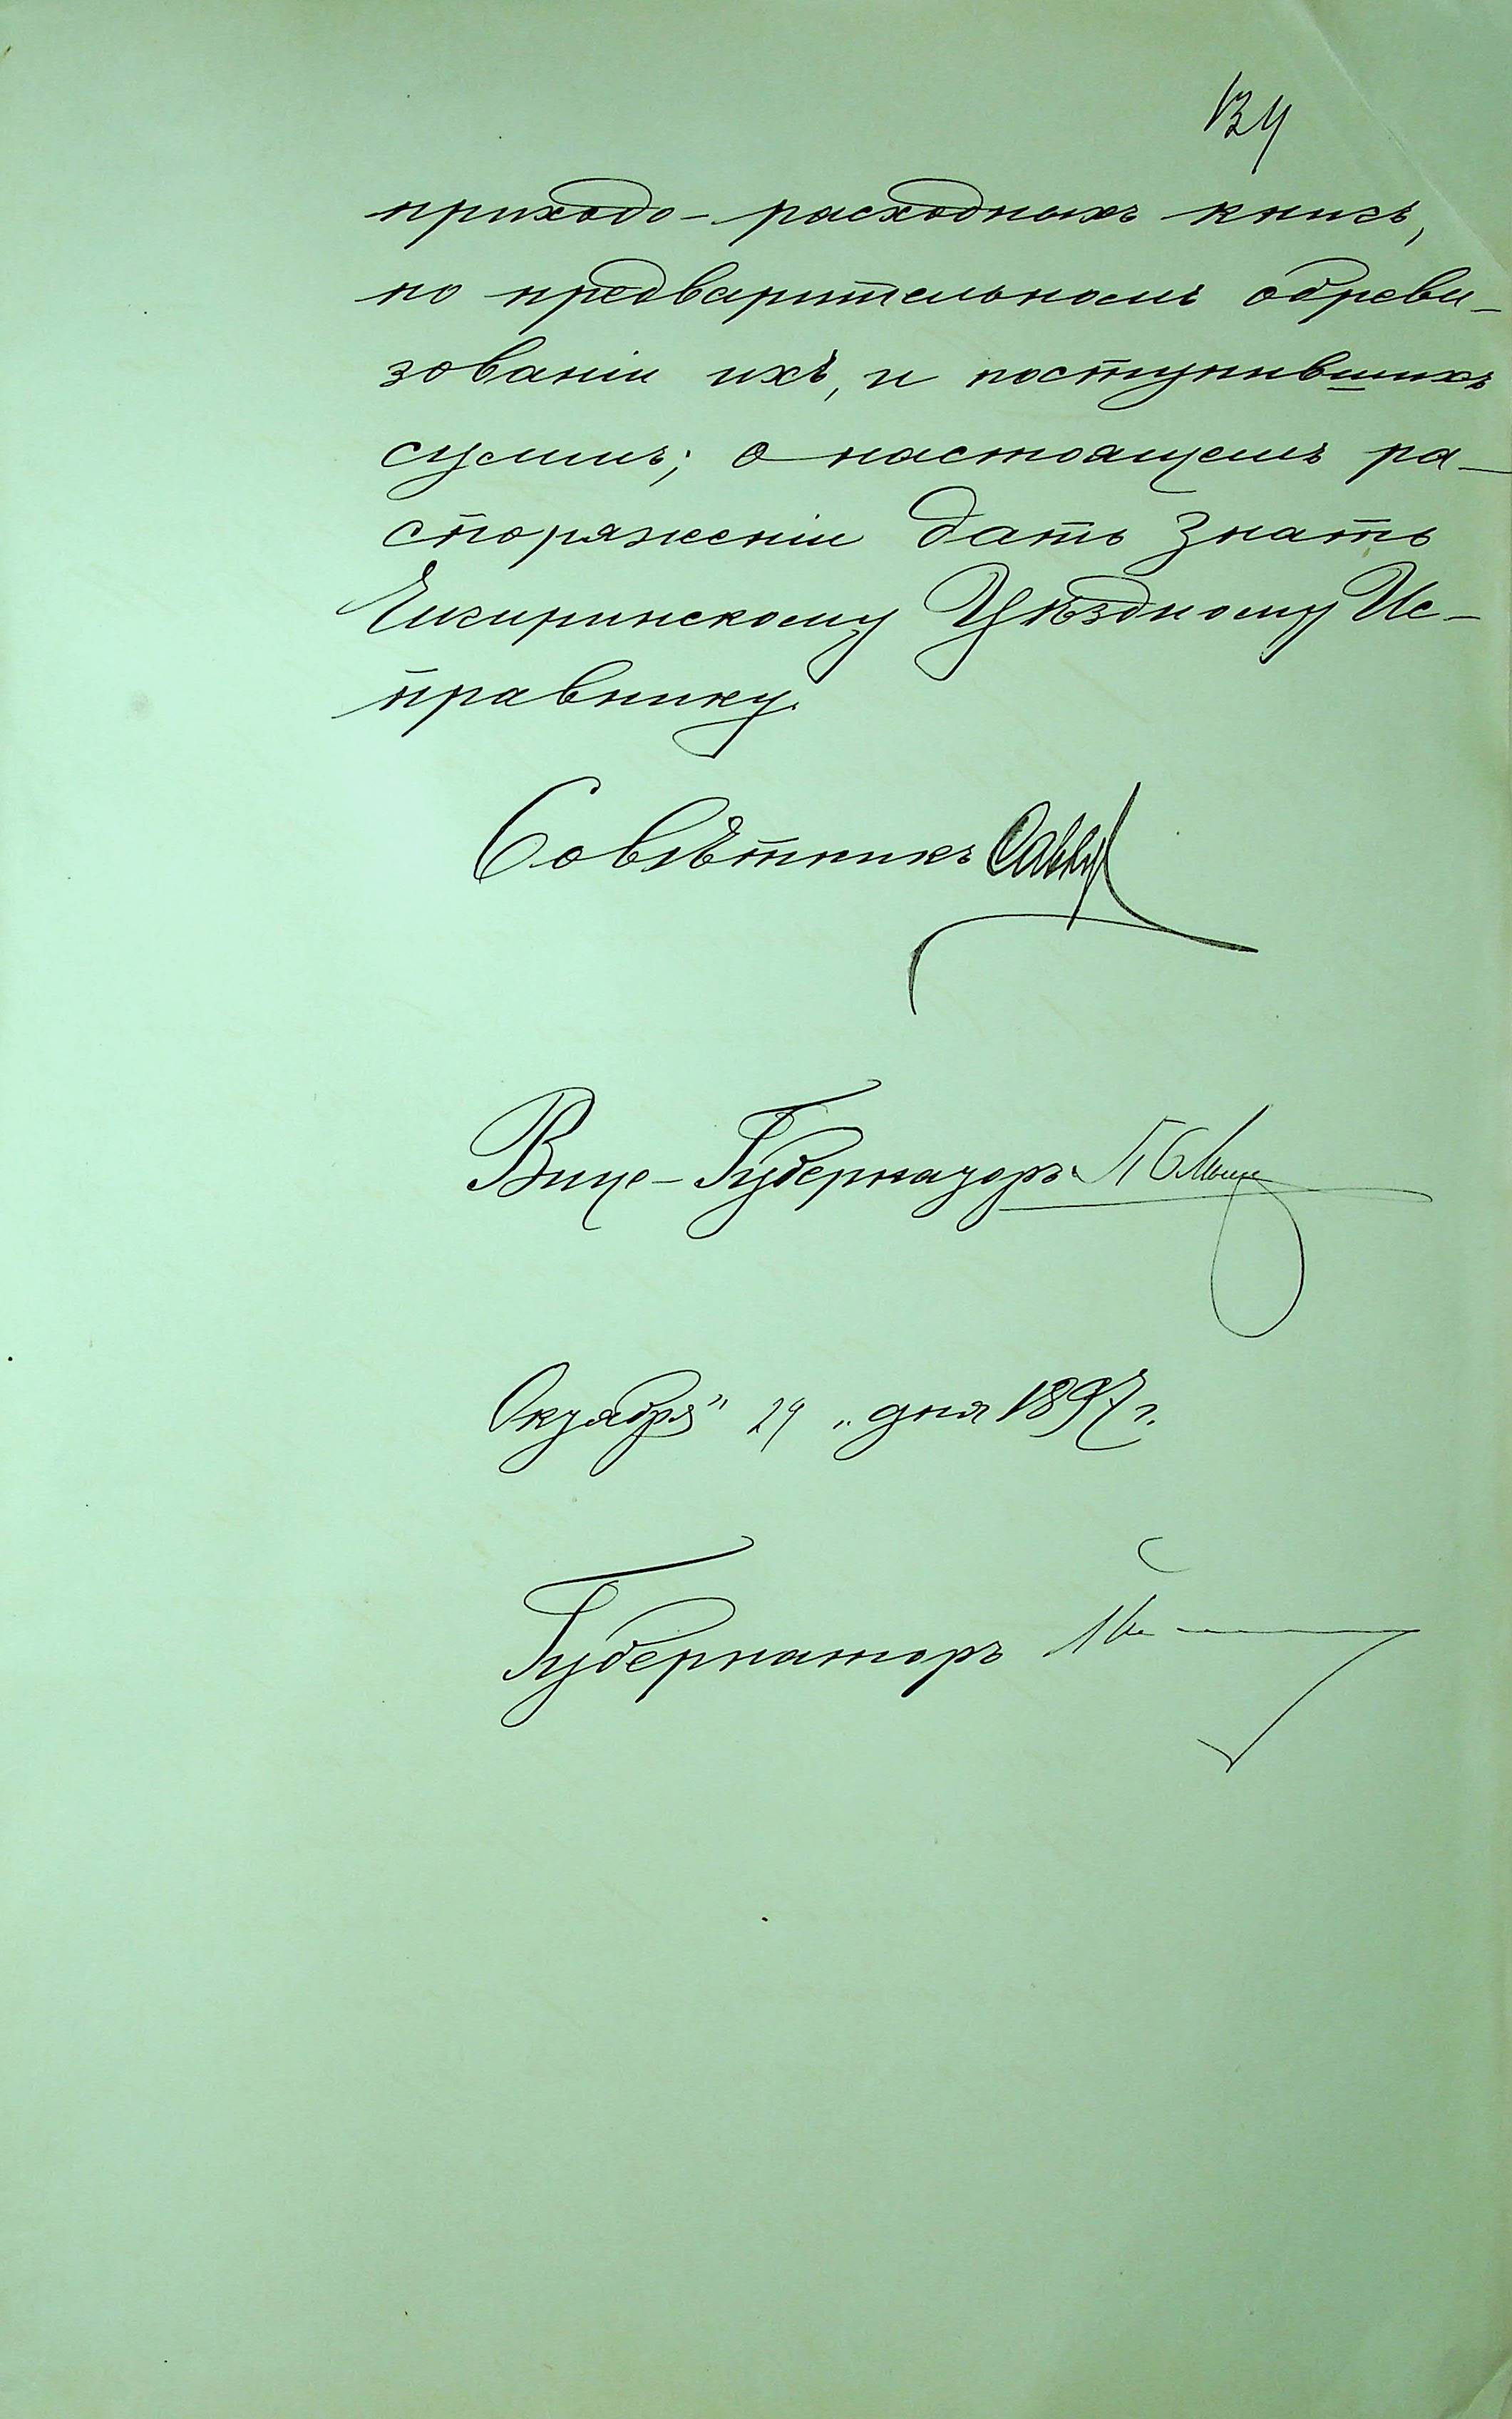 134
приходо-расходныхъ книгъ,
по предварительномъ обреви-
зованіи ихъ, и поступившихъ
суммъ; о настоящемъ ра-
споряженіи дать знать
Чигиринскому Уѣздному Ис-
правнику.
Совѣтникъ
Вице-Губернаторъ
Октября "29" дня 1897 г.
Губернаторъ